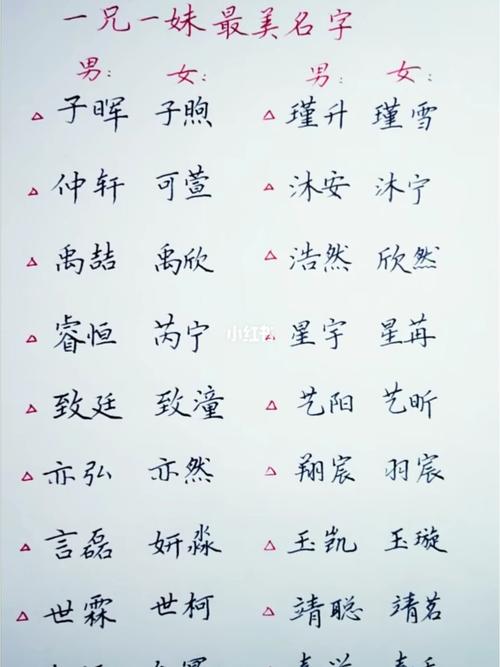 一兄一妹最美名字
男: 女: 男: 女:
子晖 子煦 瑾升 瑾雪
仲轩 可萱 沐安 沐宁
禹喆 禹欣 浩然 欣然
睿恒 芮宁 星宇 星苒
小红书
致廷 致潼 艺阳 艺昕
亦弘 亦然 翔宸 羽宸
言磊 妍淼 玉凯 玉璇
世霖 世柯 靖聪 靖茗